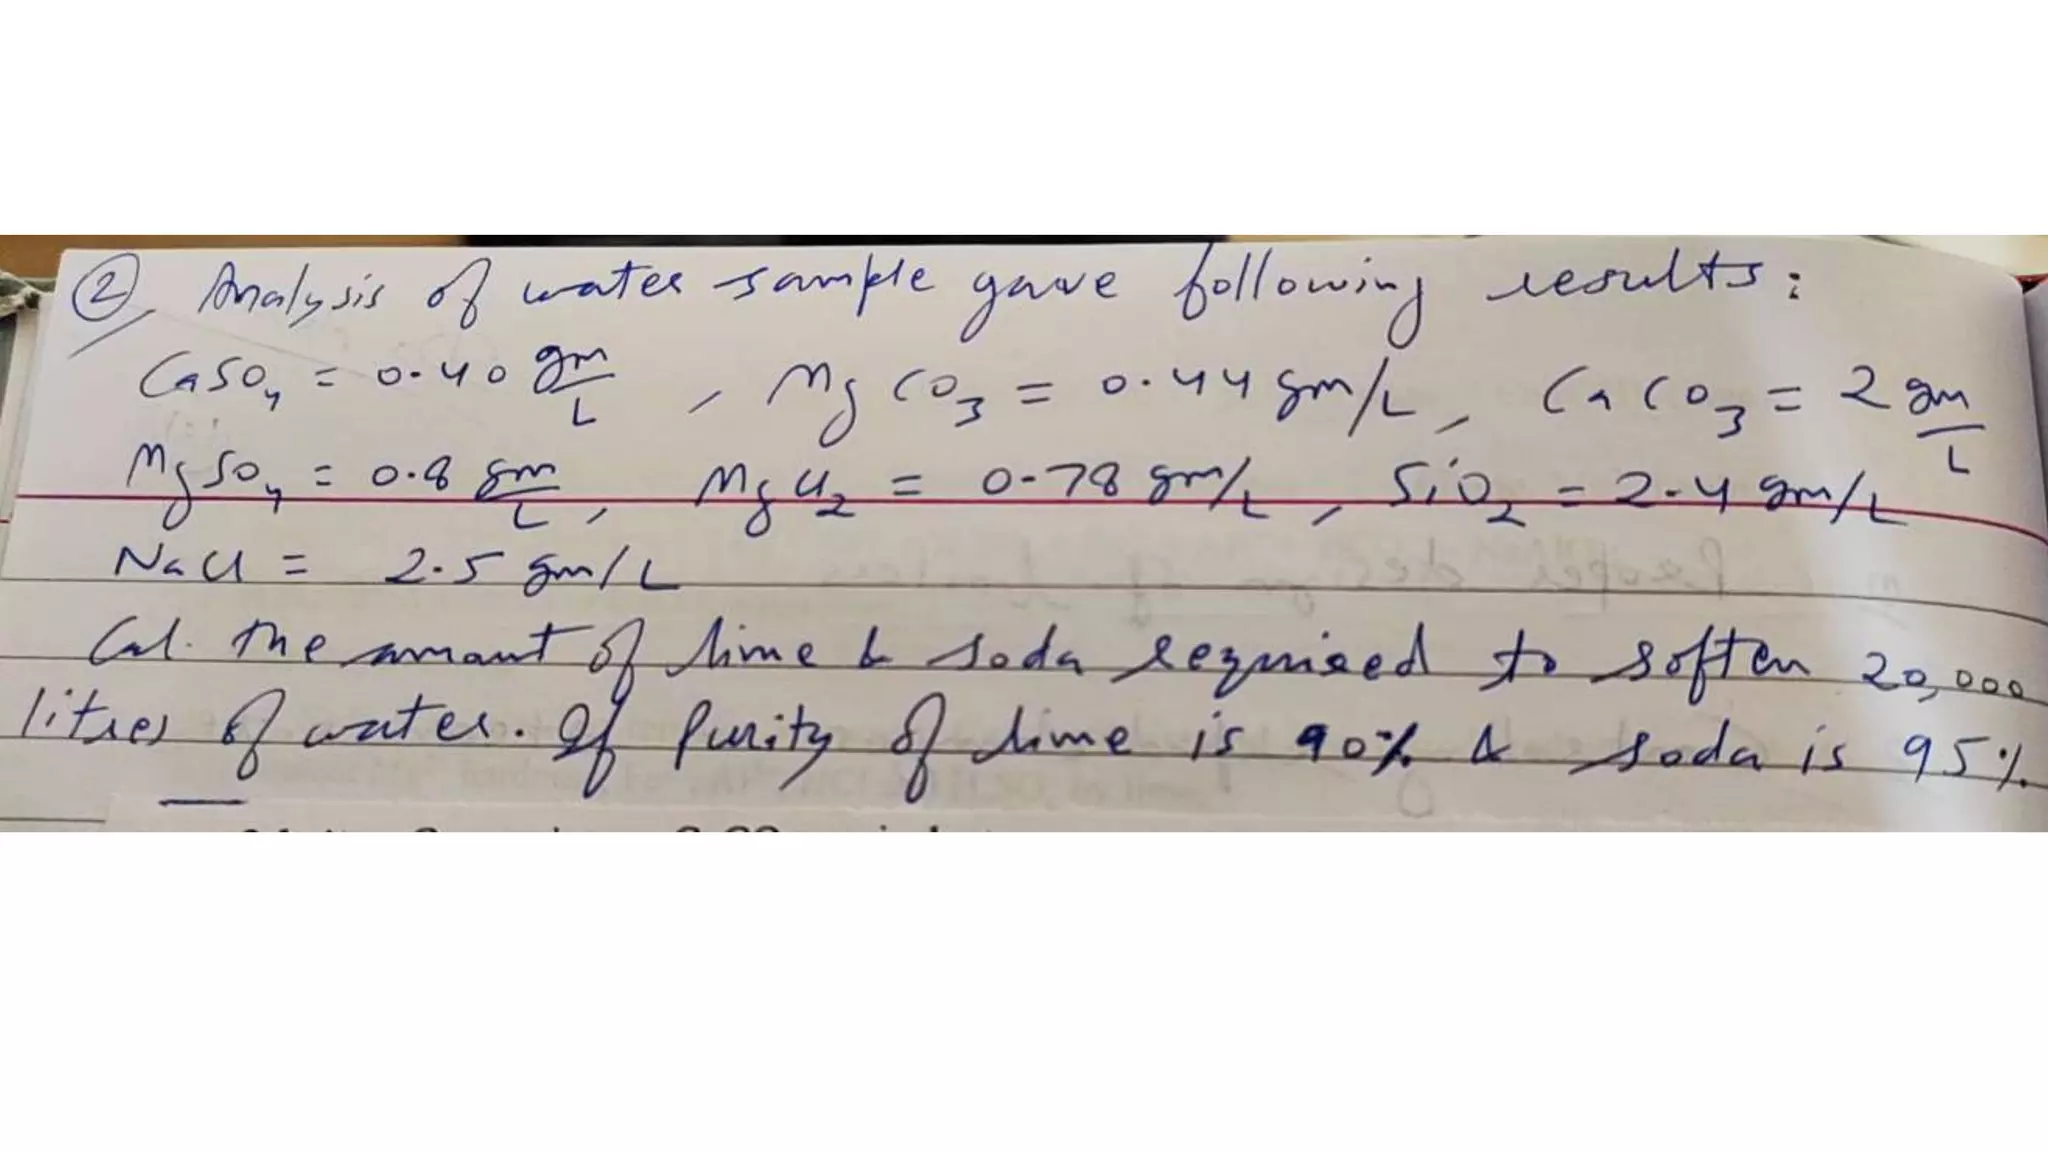 ② Analysis of water sample gave following results:
CaSO₄ = 0.40 gm/L, MgCO₃ = 0.44 gm/L, CaCO₃ = 2 gm/L
MgSO₄ = 0.8 gm/L, MgCl₂ = 0.78 gm/L, SiO₂ = 2.4 gm/L
NaCl = 2.5 gm/L
Cal. the amount of lime & soda required to soften 20,000
litres of water. If Purity of lime is 90% & soda is 95%